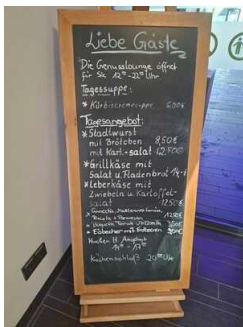 Liebe Gäste
Die Genusslounge öffnet
für Sie 12⁰⁰-22⁰⁰ Uhr
Tagessuppe:
* Kürbiscremesuppe 6,00€
Tagesangebot:
* Stadtwurst
mit Brötchen 8,50€
mit Kart.-salat 12,50€
* Grillkäse mit
Salat u. Fladenbrot 14,-€
* Leberkäse mit
Zwiebeln u. Kartoffel-
salat 12,50€
* Eisbecher mit Erdbeeren
Kuchen lt. Angebot
Küchenschluß 20⁰⁰ Uhr